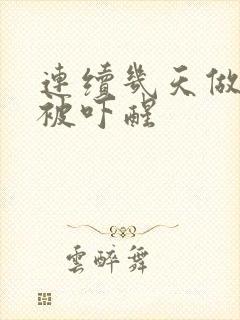 連續幾天做
被吓醒
雲醉舞